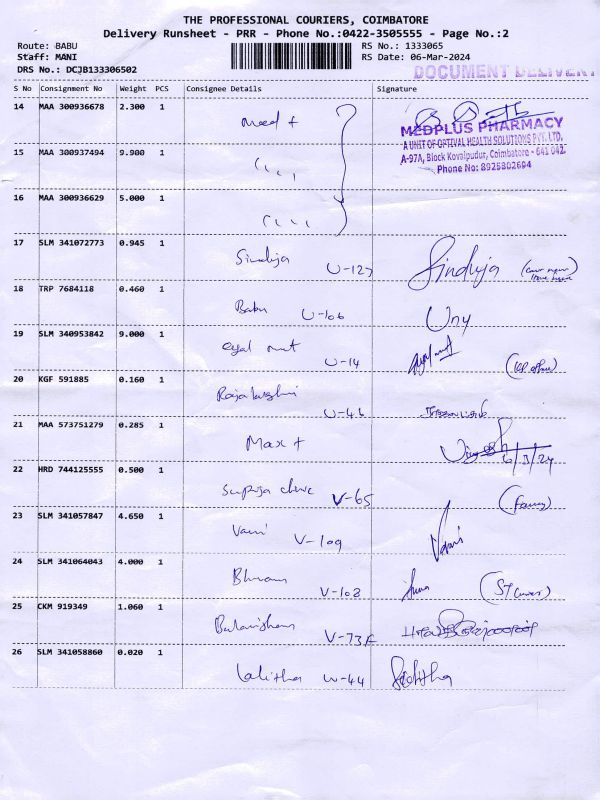 THE PROFESSIONAL COURIERS, COIMBATORE
Delivery Runsheet - PRR - Phone No.:0422-3505555 - Page No.:2
Route: BABU RS No.: 1333065
Staff: MANI RS Date: 06-Mar-2024
DRS No.: DCJB133306502
DOCUMENT DELIVERY
S No Consignment No Weight PCS Consignee Details Signature
14 MAA 300936678 2.300 1
Med +
MEDPLUS PHARMACY
A UNIT OF OPTIVAL HEALTH SOLUTIONS PVT. LTD.
A-97A, Block Kovaipudur, Coimbatore - 641 042.
Phone No: 8925802694
15 MAA 300937494 9.900 1
16 MAA 300936629 5.000 1
17 SLM 341072773 0.945 1
Sinduja U-127 Sinduja
18 TRP 7684118 0.460 1
Babu U-106
19 SLM 340953842 9.000 1
U-14
20 KGF 591885 0.160 1
U-46
21 MAA 573751279 0.285 1
Max +
6/3/24
22 HRD 744125555 0.500 1
V-65
23 SLM 341057847 4.650 1
Vani V-109 Vani
24 SLM 341064043 4.000 1
V-108
25 CKM 919349 1.060 1
V-73F
26 SLM 341058860 0.020 1
Lalitha W-44 Lalitha